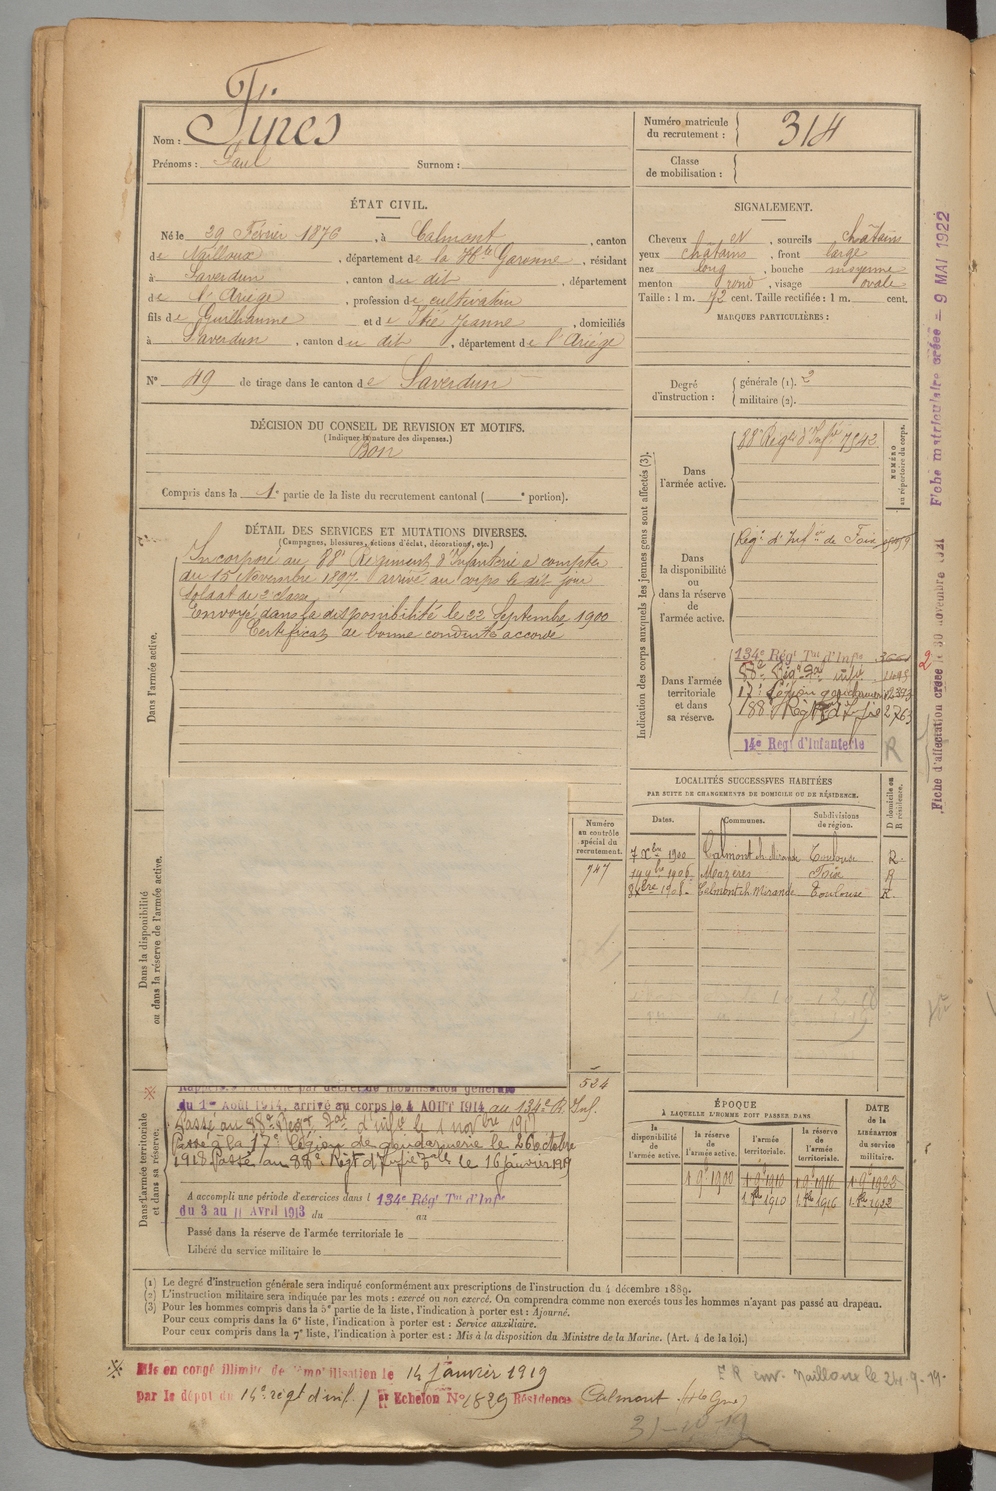 Nom : Fires
Prénoms : Paul Surnom :
Numéro matricule du recrutement : 314
Classe de mobilisation :
ÉTAT CIVIL.
Né le 29 Février 1876, à Calmont, canton
de Nailloux, département de la Hte Garonne, résidant
à Saverdun, canton du dit, département
de l'Ariège, profession de cultivateur
fils de Guilhaume et de Itié Jeanne, domiciliés
à Saverdun, canton du dit, département de l'Ariége
N° 49 de tirage dans le canton de Saverdun
SIGNALEMENT.
Cheveux et, sourcils châtains
yeux châtains, front large
nez long, bouche moyenne
menton rond, visage ovale
Taille : 1 m. 72 cent. Taille rectifiée : 1 m. cent.
MARQUES PARTICULIÈRES :
Degré d'instruction : générale (1). 2
militaire (2).
DÉCISION DU CONSEIL DE REVISION ET MOTIFS.
(Indiquer la nature des dispenses.)
Bon
Compris dans la 1e partie de la liste du recrutement cantonal ( e portion).
DÉTAIL DES SERVICES ET MUTATIONS DIVERSES.
(Campagnes, blessures, actions d'éclat, décorations, etc.)
Dans l'armée active.
Incorporé au 88e Régiment d'Infanterie à compter
du 15 Novembre 1897. arrivé au corps le dit jour
soldat de 2e classe
Envoyé dans la disponibilité le 22 Septembre 1900
Certificat de bonne conduite accordé
Indication des corps auxquels les jeunes gens sont affectés (3).
NUMÉRO au répertoire du corps.
Dans l'armée active.
88e Régt d'Infrie 7942
Dans la disponibilité ou dans la réserve de l'armée active.
Régt d'Infrie de Foix
Dans l'armée territoriale et dans sa réserve.
134e Régt Tal d'Infie
88e Régt Tal infie
17e Légion gendarmerie
188e Régt d'Infie 2763
14e Regt d'Infanterie
R
LOCALITÉS SUCCESSIVES HABITÉES
PAR SUITE DE CHANGEMENTS DE DOMICILE OU DE RÉSIDENCE.
D domicile ou R résidence.
Dates. Communes. Subdivisions de région.
7 Xbre 1900 Calmont ch. Mirande Toulouse R
14 9bre 1906 Mazères Foix R
Calmont ch Mirande Toulouse R
Dans la disponibilité ou dans la réserve de l'armée active.
Numéro au contrôle spécial du recrutement.
747
524
Dans l'armée territoriale et dans sa réserve.
Rappelé à l'activité par décret de mobilisation générale
du 1er Août 1914, arrivé au corps le 4 AOUT 1914 au 134e R. Inf.
Passé au 88e Régt Tal d'infie le 1 novbre 191
Passé à la 17e légion de gendarmerie le 26 octobre
1918 Passé au 88e Régt d'Infie le 16 janvier 1919
A accompli une période d'exercices dans l 134e Régt Tal d'Infie
du 3 au 11 Avril 1913 du au
Passé dans la réserve de l'armée territoriale le
Libéré du service militaire le
ÉPOQUE
À LAQUELLE L'HOMME DOIT PASSER DANS
DATE de la LIBÉRATION du service militaire.
la disponibilité de l'armée active. la réserve de l'armée active. l'armée territoriale. la réserve de l'armée territoriale.
1 9e 1900 1 9e 1910 1 9e 1916 1 9e 1922
1 8bre 1910 1 8bre 1916 1 8bre 1922
(1) Le degré d'instruction générale sera indiqué conformément aux prescriptions de l'instruction du 4 décembre 1889.
(2) L'instruction militaire sera indiquée par les mots : exercé ou non exercé. On comprendra comme non exercés tous les hommes n'ayant pas passé au drapeau.
(3) Pour les hommes compris dans la 5e partie de la liste, l'indication à porter est : Ajourné.
Pour ceux compris dans la 6e liste, l'indication à porter est : Service auxiliaire.
Pour ceux compris dans la 7e liste, l'indication à porter est : Mis à la disposition du Ministre de la Marine. (Art. 4 de la loi.)
Mis en congé illimité de démobilisation le 14 Janvier 1919
par le dépôt du 14e régt d'inf. 1er Echelon N° 1829 Résidence Calmont (Hte Gne)
Nailloux le 24-9-19
31-10-19
Fiche d'affectation créée le 30 novembre 1921
Fiche matriculaire créée = 9 MAI 1922